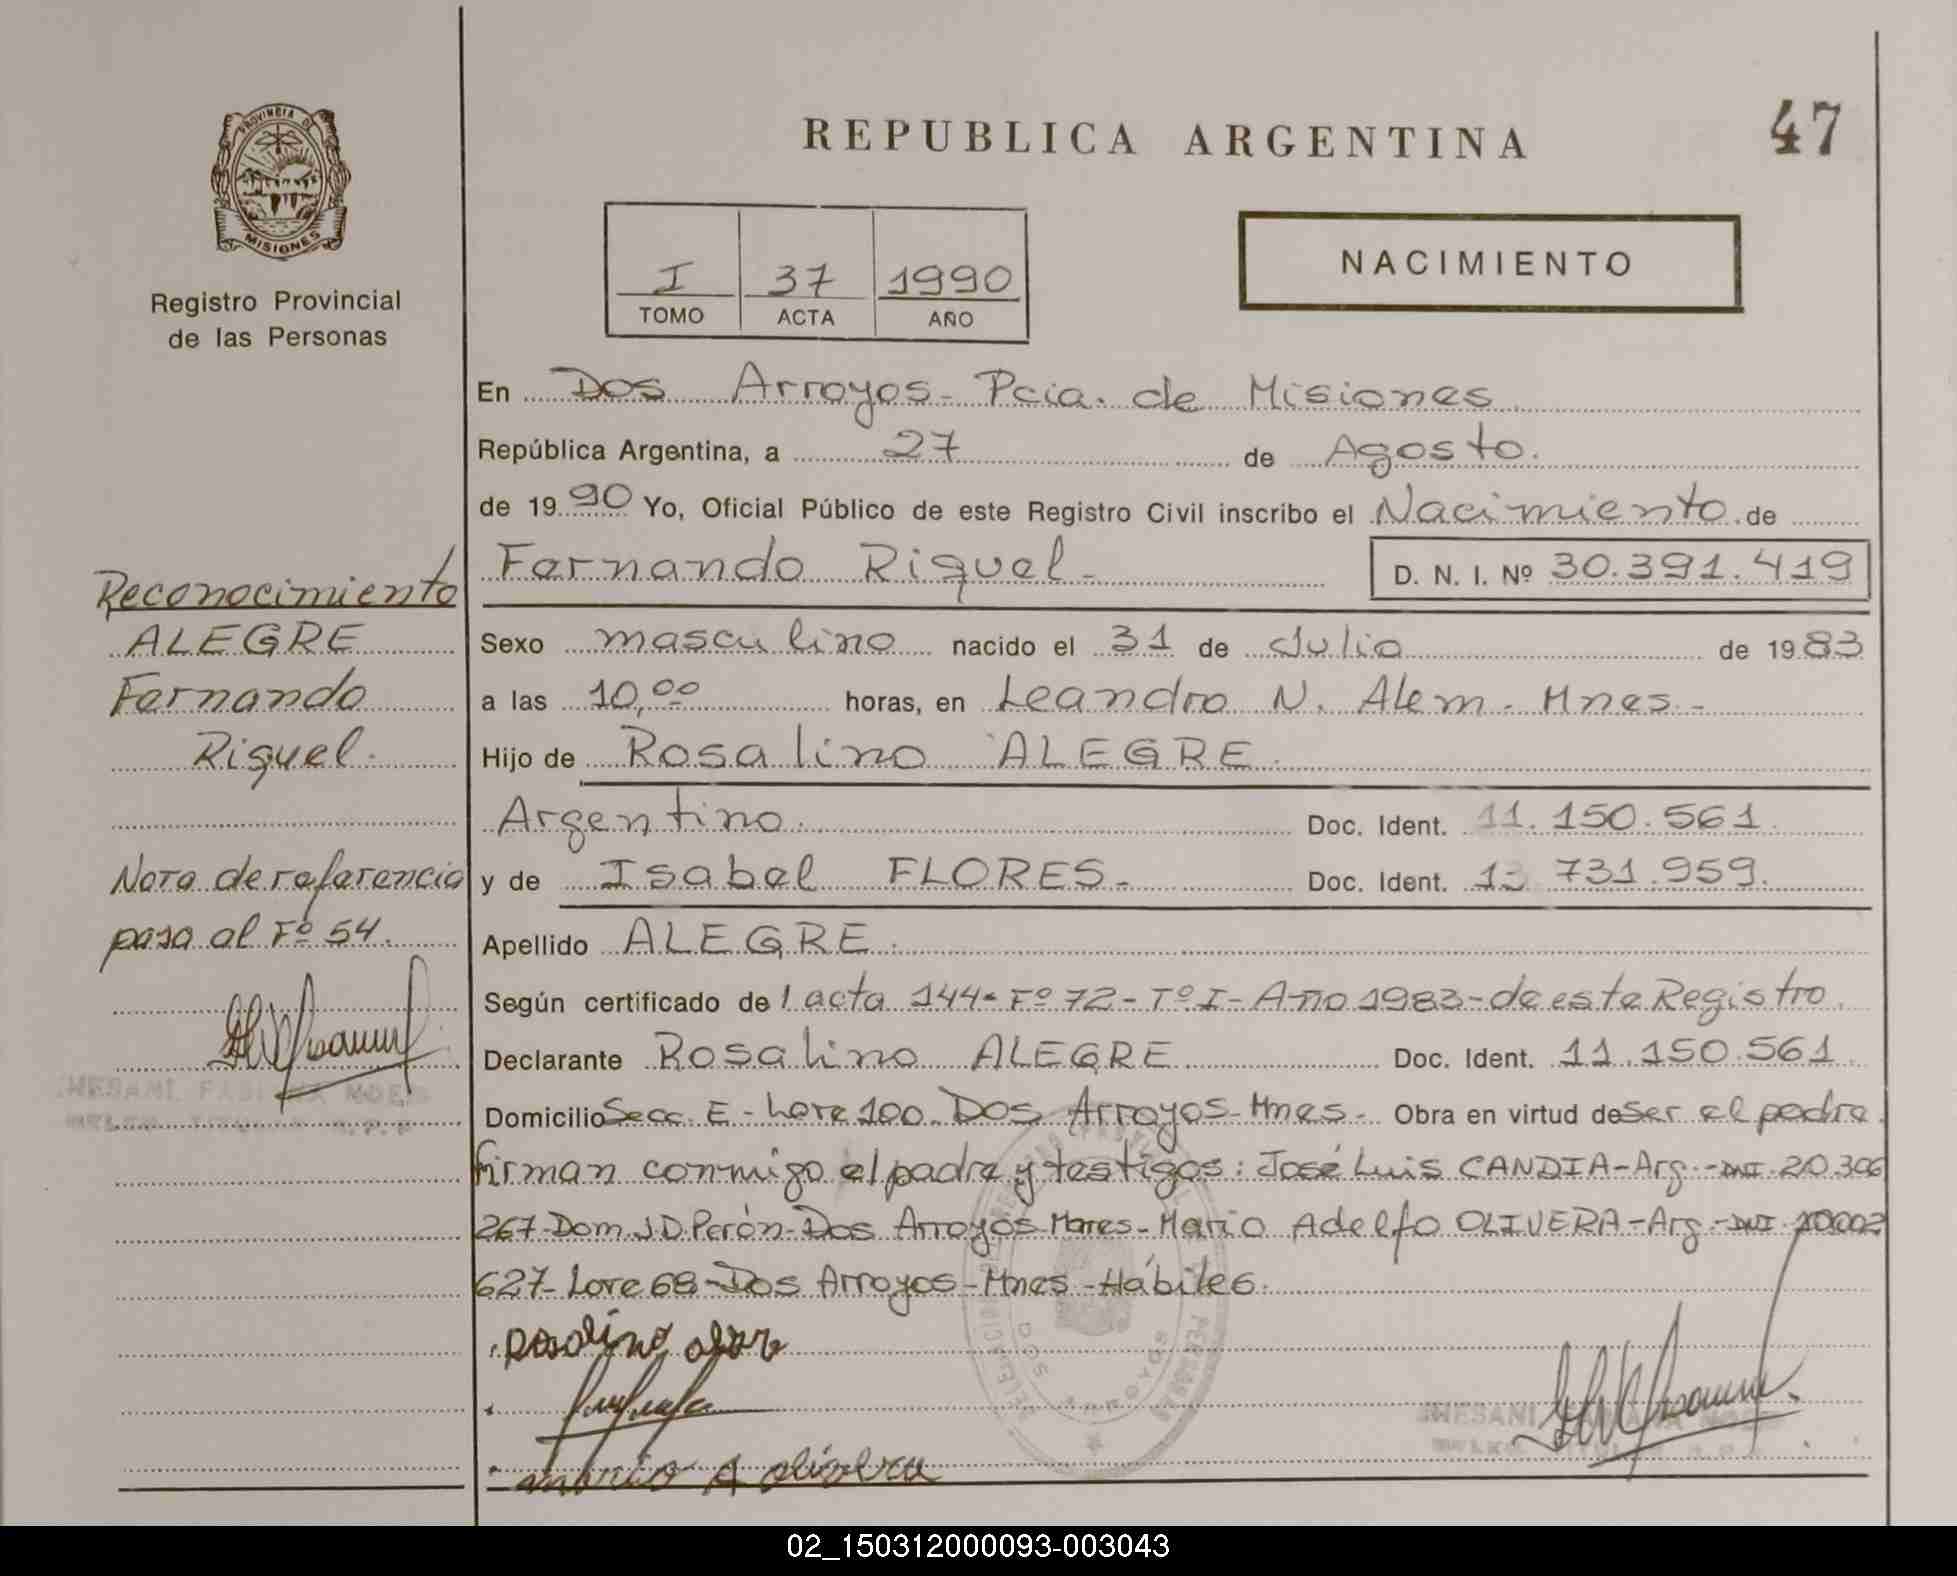 PROVINCIA DE
MISIONES
Registro Provincial
de las Personas
REPUBLICA ARGENTINA
47
I 37 1990
TOMO ACTA AÑO
NACIMIENTO
En Dos Arroyos - Pcia. de Misiones
República Argentina, a 27 de Agosto.
de 1990 Yo, Oficial Público de este Registro Civil inscribo el Nacimiento de
Fernando Riquel - D. N. I. Nº 30.391.419
Sexo masculino nacido el 31 de Julio de 1983
a las 10,00 horas, en Leandro N. Alem - Mnes -
Hijo de Rosalino ALEGRE.
Argentino. Doc. Ident. 11.150.561.
y de Isabel FLORES - Doc. Ident. 13 731.959.
Apellido ALEGRE.
Según certificado de l acta 144 - Fº 72 - Tº I - Año 1983 - de este Registro.
Declarante Rosalino ALEGRE Doc. Ident. 11.150.561.
Domicilio Secc. E - Lote 100. Dos Arroyos - Mnes - Obra en virtud de ser el padre.
firman conmigo el padre y testigos: José Luis CANDIA - Arg. - DNI. 20.306
267 - Dom. J.D. Perón - Dos Arroyos - Mario Adelfo OLIVERA - Arg. - DNI
627 - Lote 68 - Dos Arroyos - Mnes - Hábiles.
Mario A Olivera
DOS ARROYOS
Reconocimiento
ALEGRE
Fernando
Riquel.
Nota de referencia
pasa al Fº 54.
02_150312000093-003043